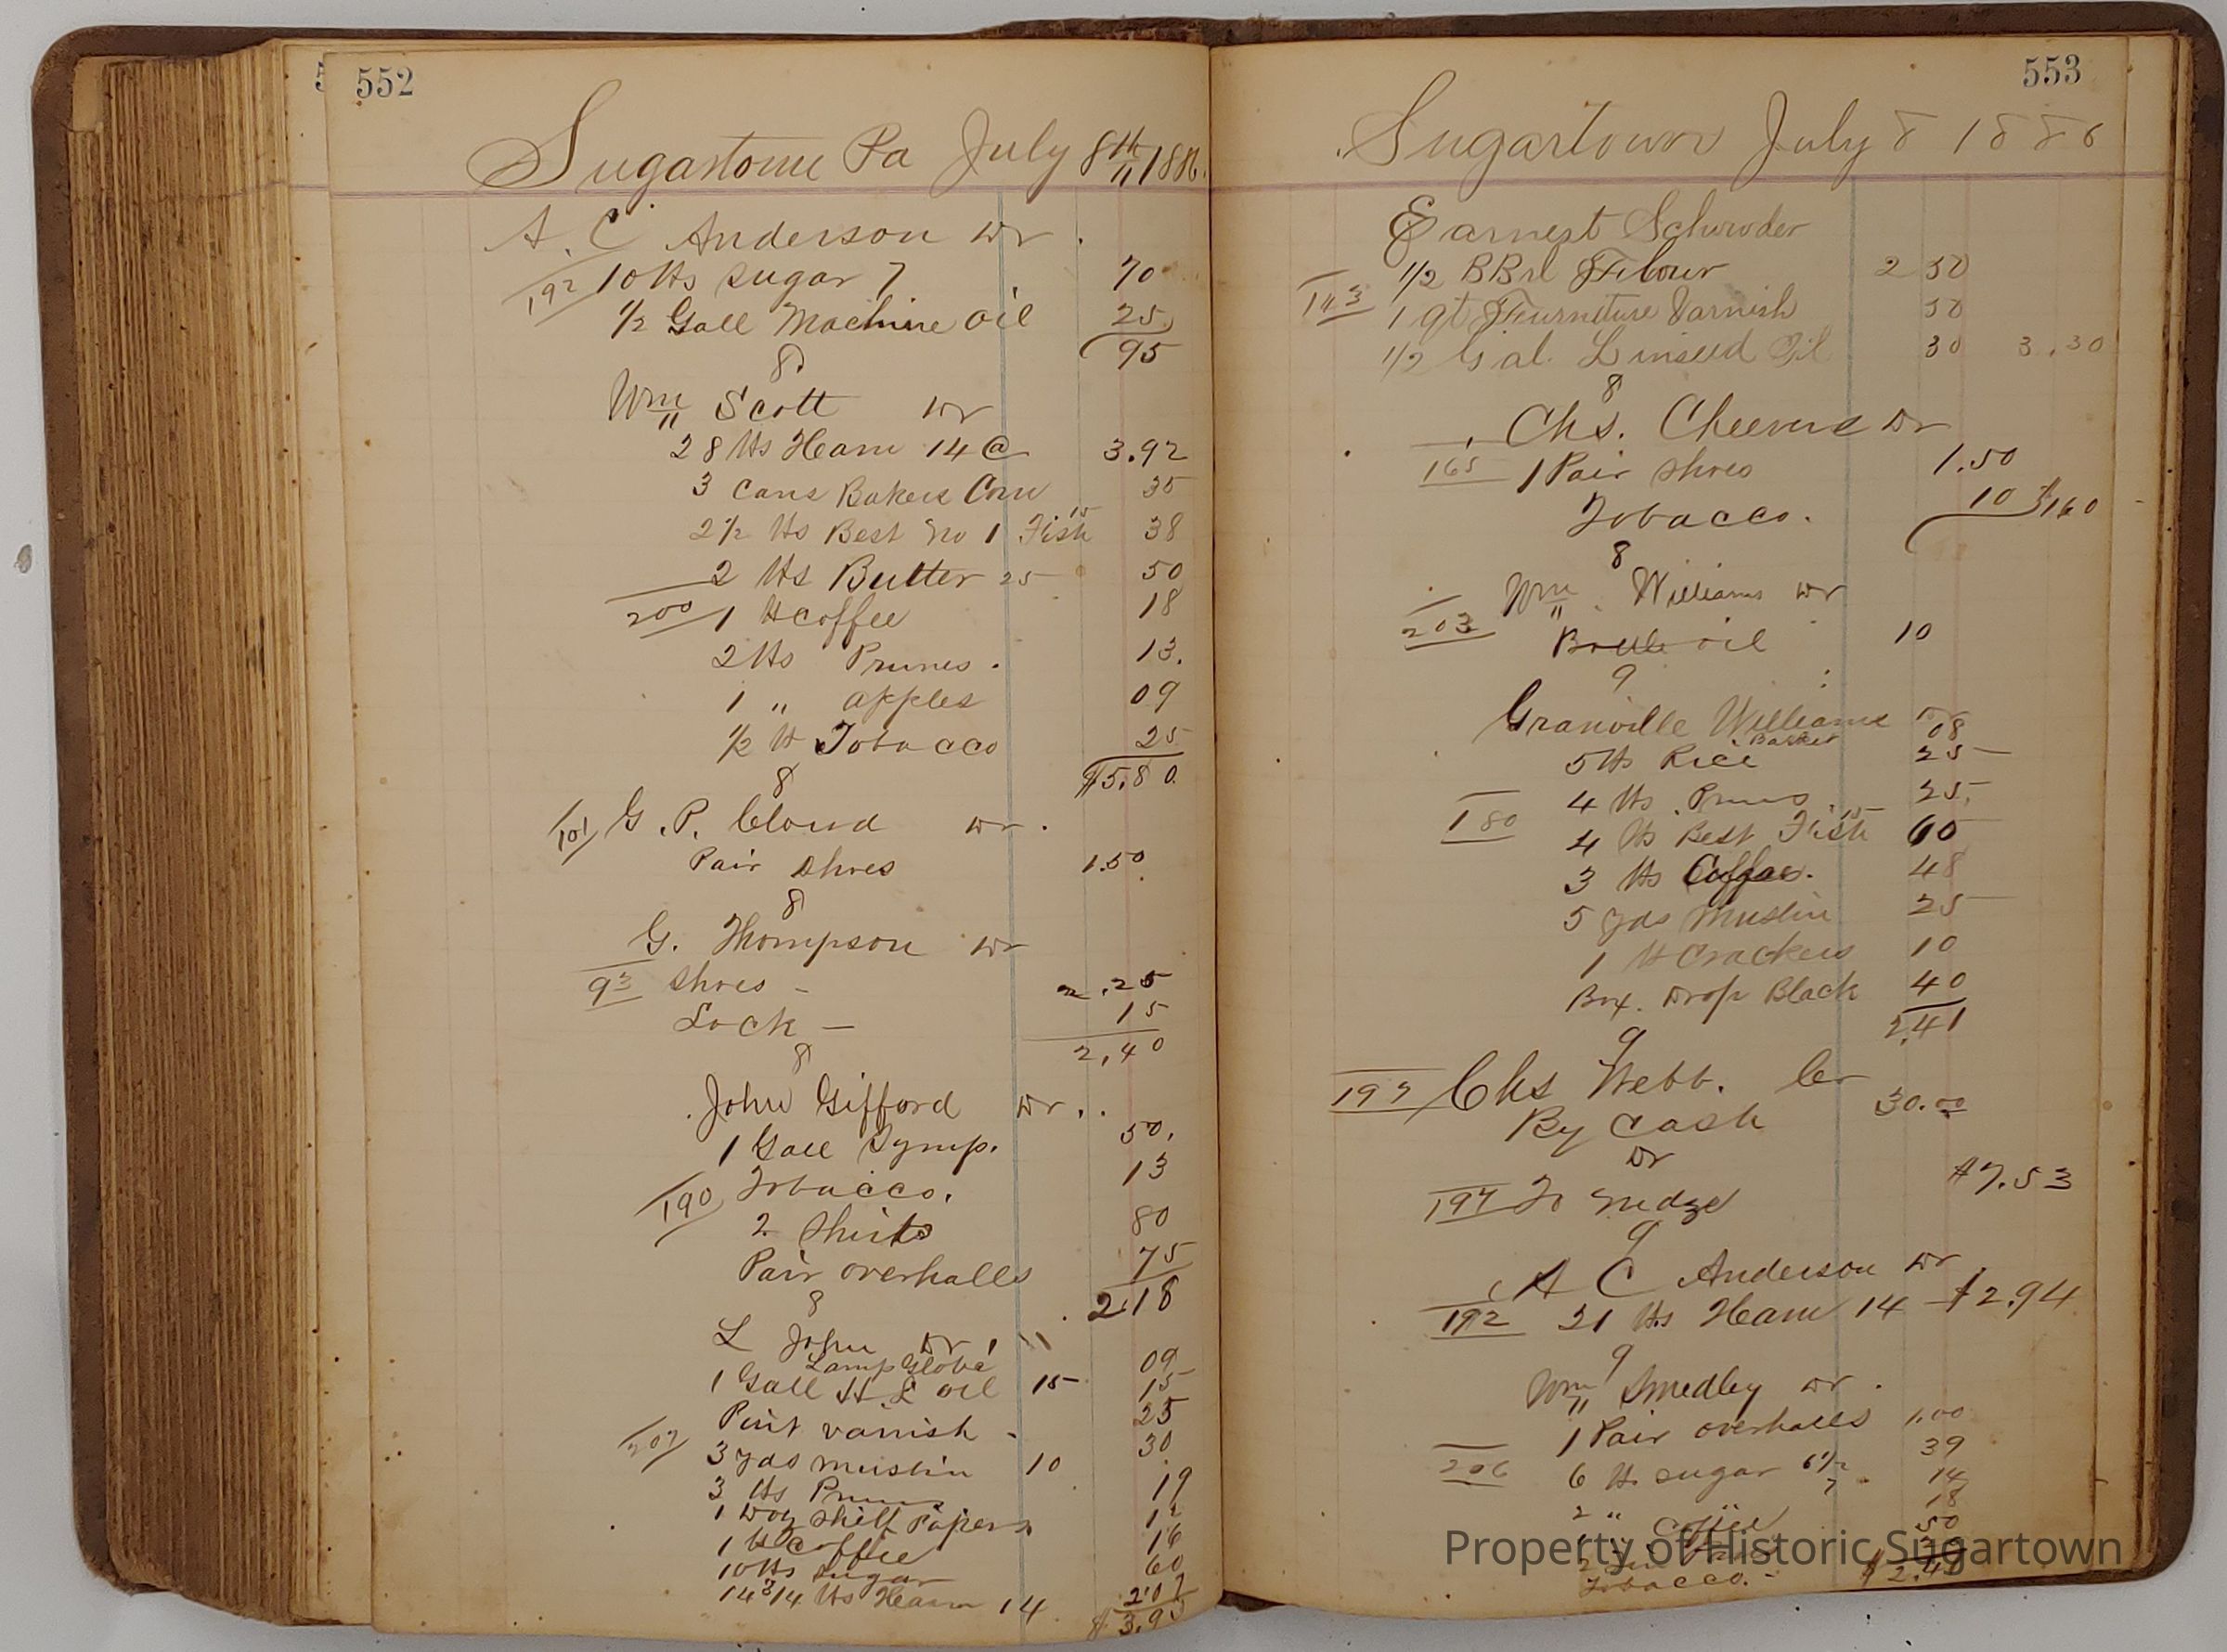 552
Sugartown Pa July 8th 1886.
A. C Anderson Dr.
192 10 lbs sugar 7 70
1/2 Gall Machine oil 25
95
8
Wm Scott Dr
28 lbs Ham 14 @ 3.92
3 Cans Bakers Corn 35
2 1/2 lbs Best No 1 Fish 15 38
2 lbs Butter 25 50
200 1 lb coffee 18
2 lbs Prunes. 13.
1 " apples 09
1/2 lb Tobacco 25
$5.80
8
101 G. P. Cloud Dr.
Pair shoes 1.50
8
G. Thompson Dr
93 Shoes - 2.25
Lock - 15
2,40
8
John Gifford Dr..
1 Gall Syrup. 50.
190 Tobacco. 13
2 Shirts 80
Pair overhalls 75
2.18
8
L John Dr
Lamp Globe 09
1 Gall H. L oil 15 15
Pint varnish - 25
207 3 yds muslin 10 30
3 lbs Prunes 19
1 Doz Shelf Papers 12
1 lb Coffee 16
10 lbs sugar 60
14 3/4 lbs Ham 14 2.07
$3.93
553
Sugartown July 8 1886
Earnest Schroder
1/2 BBrl Flour 2 50
143 1 qt Furniture Varnish 50
1/2 Gal. Linseed Oil 30 3.30
8
Chs. Cheevers Dr
165 1 Pair shoes 1.50
Tobacco. 10 $1.60
8
Wm Williams Dr
203 Bottle oil 10
9
Granville Williams Dr
Basket 08
5 lbs Rice 25
4 lbs Prunes 25.
180 4 lbs Best Fish 15 60
3 lbs Coffee. 48
5 yds Muslin 25
1 lb Crackers 10
Box. Drop Black 40
2.41
9
197 Chs Webb. Cr
By Cash 30.00
Dr
197 To mdze $7.53
9
A C Anderson Dr
192 21 lbs Ham 14 $2.94
9
Wm Smedley Dr.
1 Pair overhalls 1.00
206 6 lb sugar 6 1/2 39
2 " 7 14
coffee 18
50
Tobacco.
Property of Historic Sugartown